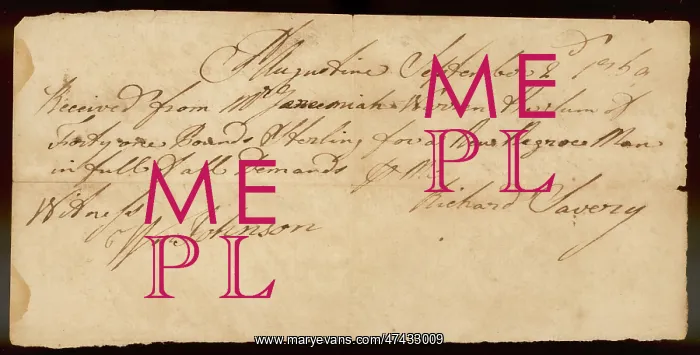 St Augustine September 2d 1769
Received from Mr Jeremiah Warren the sum of
Forty one Pounds Sterling for a New Negroe Man
in full of all Demands
Richard Savery
Witness
Wm Johnson
ME
PL
ME
PL
www.maryevans.com/47433009